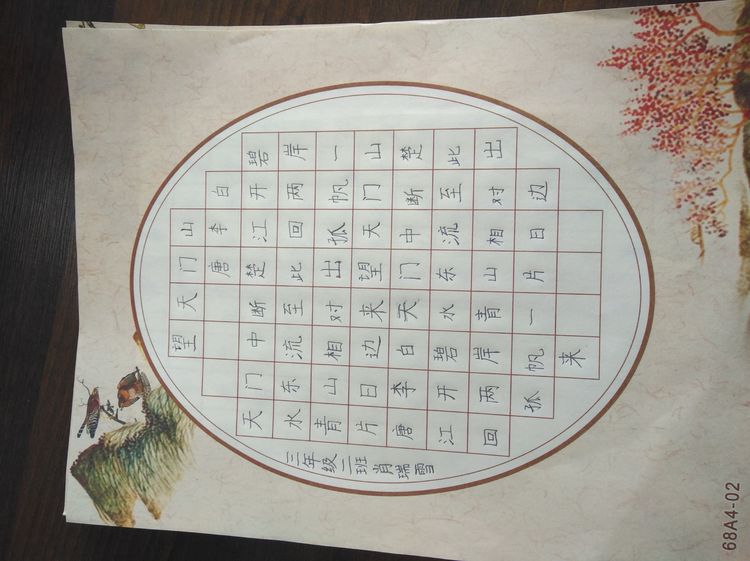 望天门山
唐李白
天门中断楚江开碧
水东流至此回两岸
青山相对出孤帆一
片日边来望天门山
唐李白天门中断楚
江开碧水东流至此
回两岸青山相对出
孤帆一片日边
来
三年级二班肖瑞雪
68A4-02